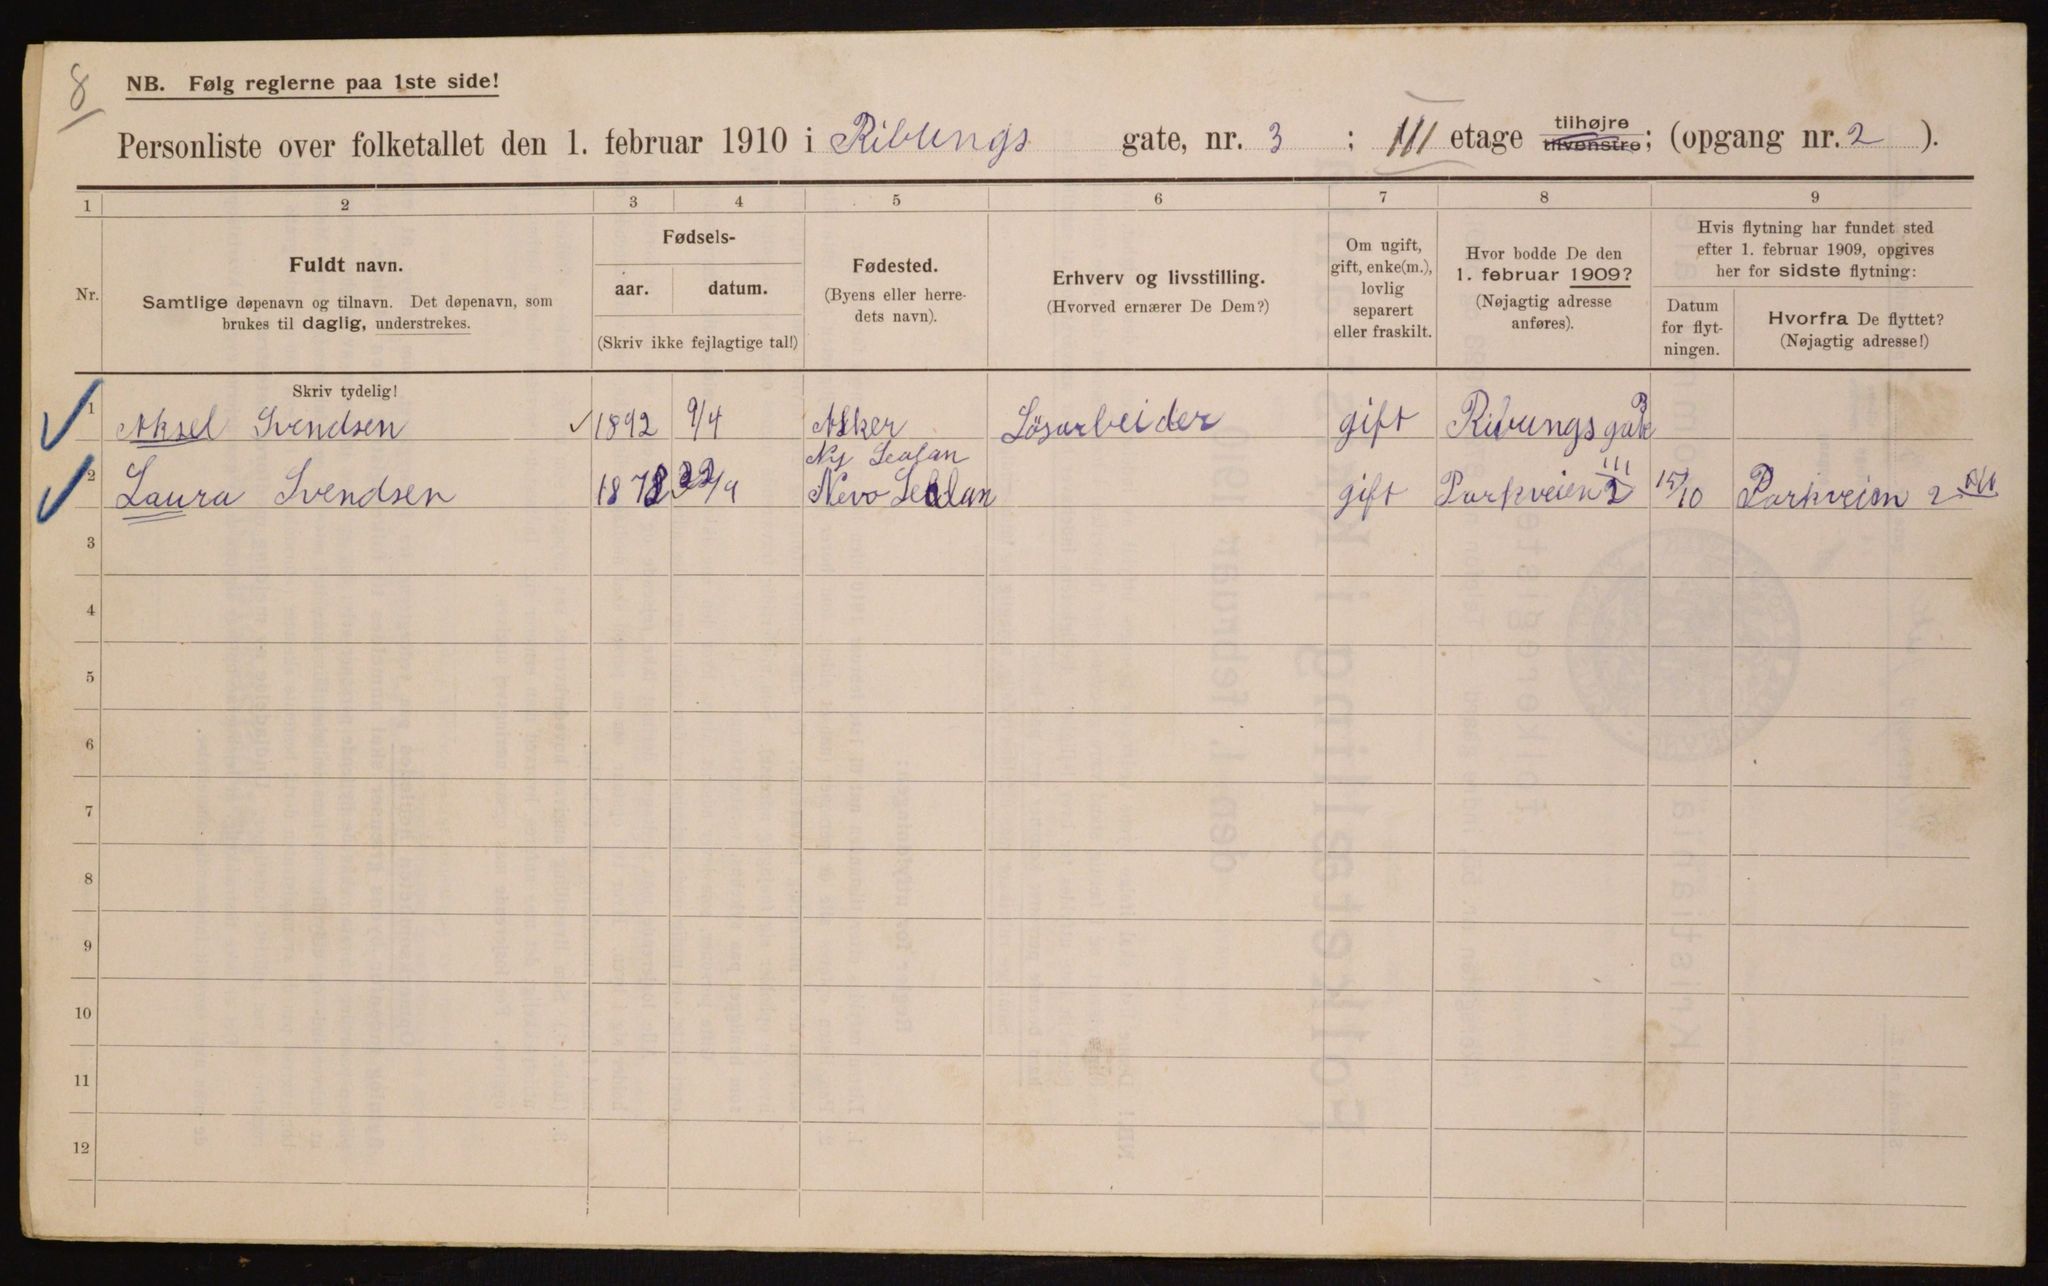 8
NB. Følg reglerne paa 1ste side!
Personliste over folketallet den 1. februar 1910 i Ribungs gate, nr. 3 ; III etage tilhøjre tilvenstre; (opgang nr. 2 ).
1 2 3 4 5 6 7 8 9
Nr.
Fuldt navn.
Samtlige døpenavn og tilnavn. Det døpenavn, som
brukes til daglig, understrekes.
Fødsels-
aar. datum.
(Skriv ikke fejlagtige tal!)
Fødested.
(Byens eller herre-
dets navn).
Erhverv og livsstilling.
(Hvorved ernærer De Dem?)
Om ugift,
gift, enke(m.),
lovlig
separert
eller fraskilt.
Hvor bodde De den
1. februar 1909?
(Nøjagtig adresse
anføres).
Hvis flytning har fundet sted
efter 1. februar 1909, opgives
her for sidste flytning:
Datum
for flyt-
ningen.
Hvorfra De flyttet?
(Nøjagtig adresse!)
Skriv tydelig!
1 Aksel Svendsen 1892 9/4 Asker Løsarbeider gift Ribungs gate 3
Ny
2 Laura Svendsen 1878 22/9 gift Parkveien 2 III 15/10 Parkveien 2
3
4
5
6
7
8
9
10
11
12